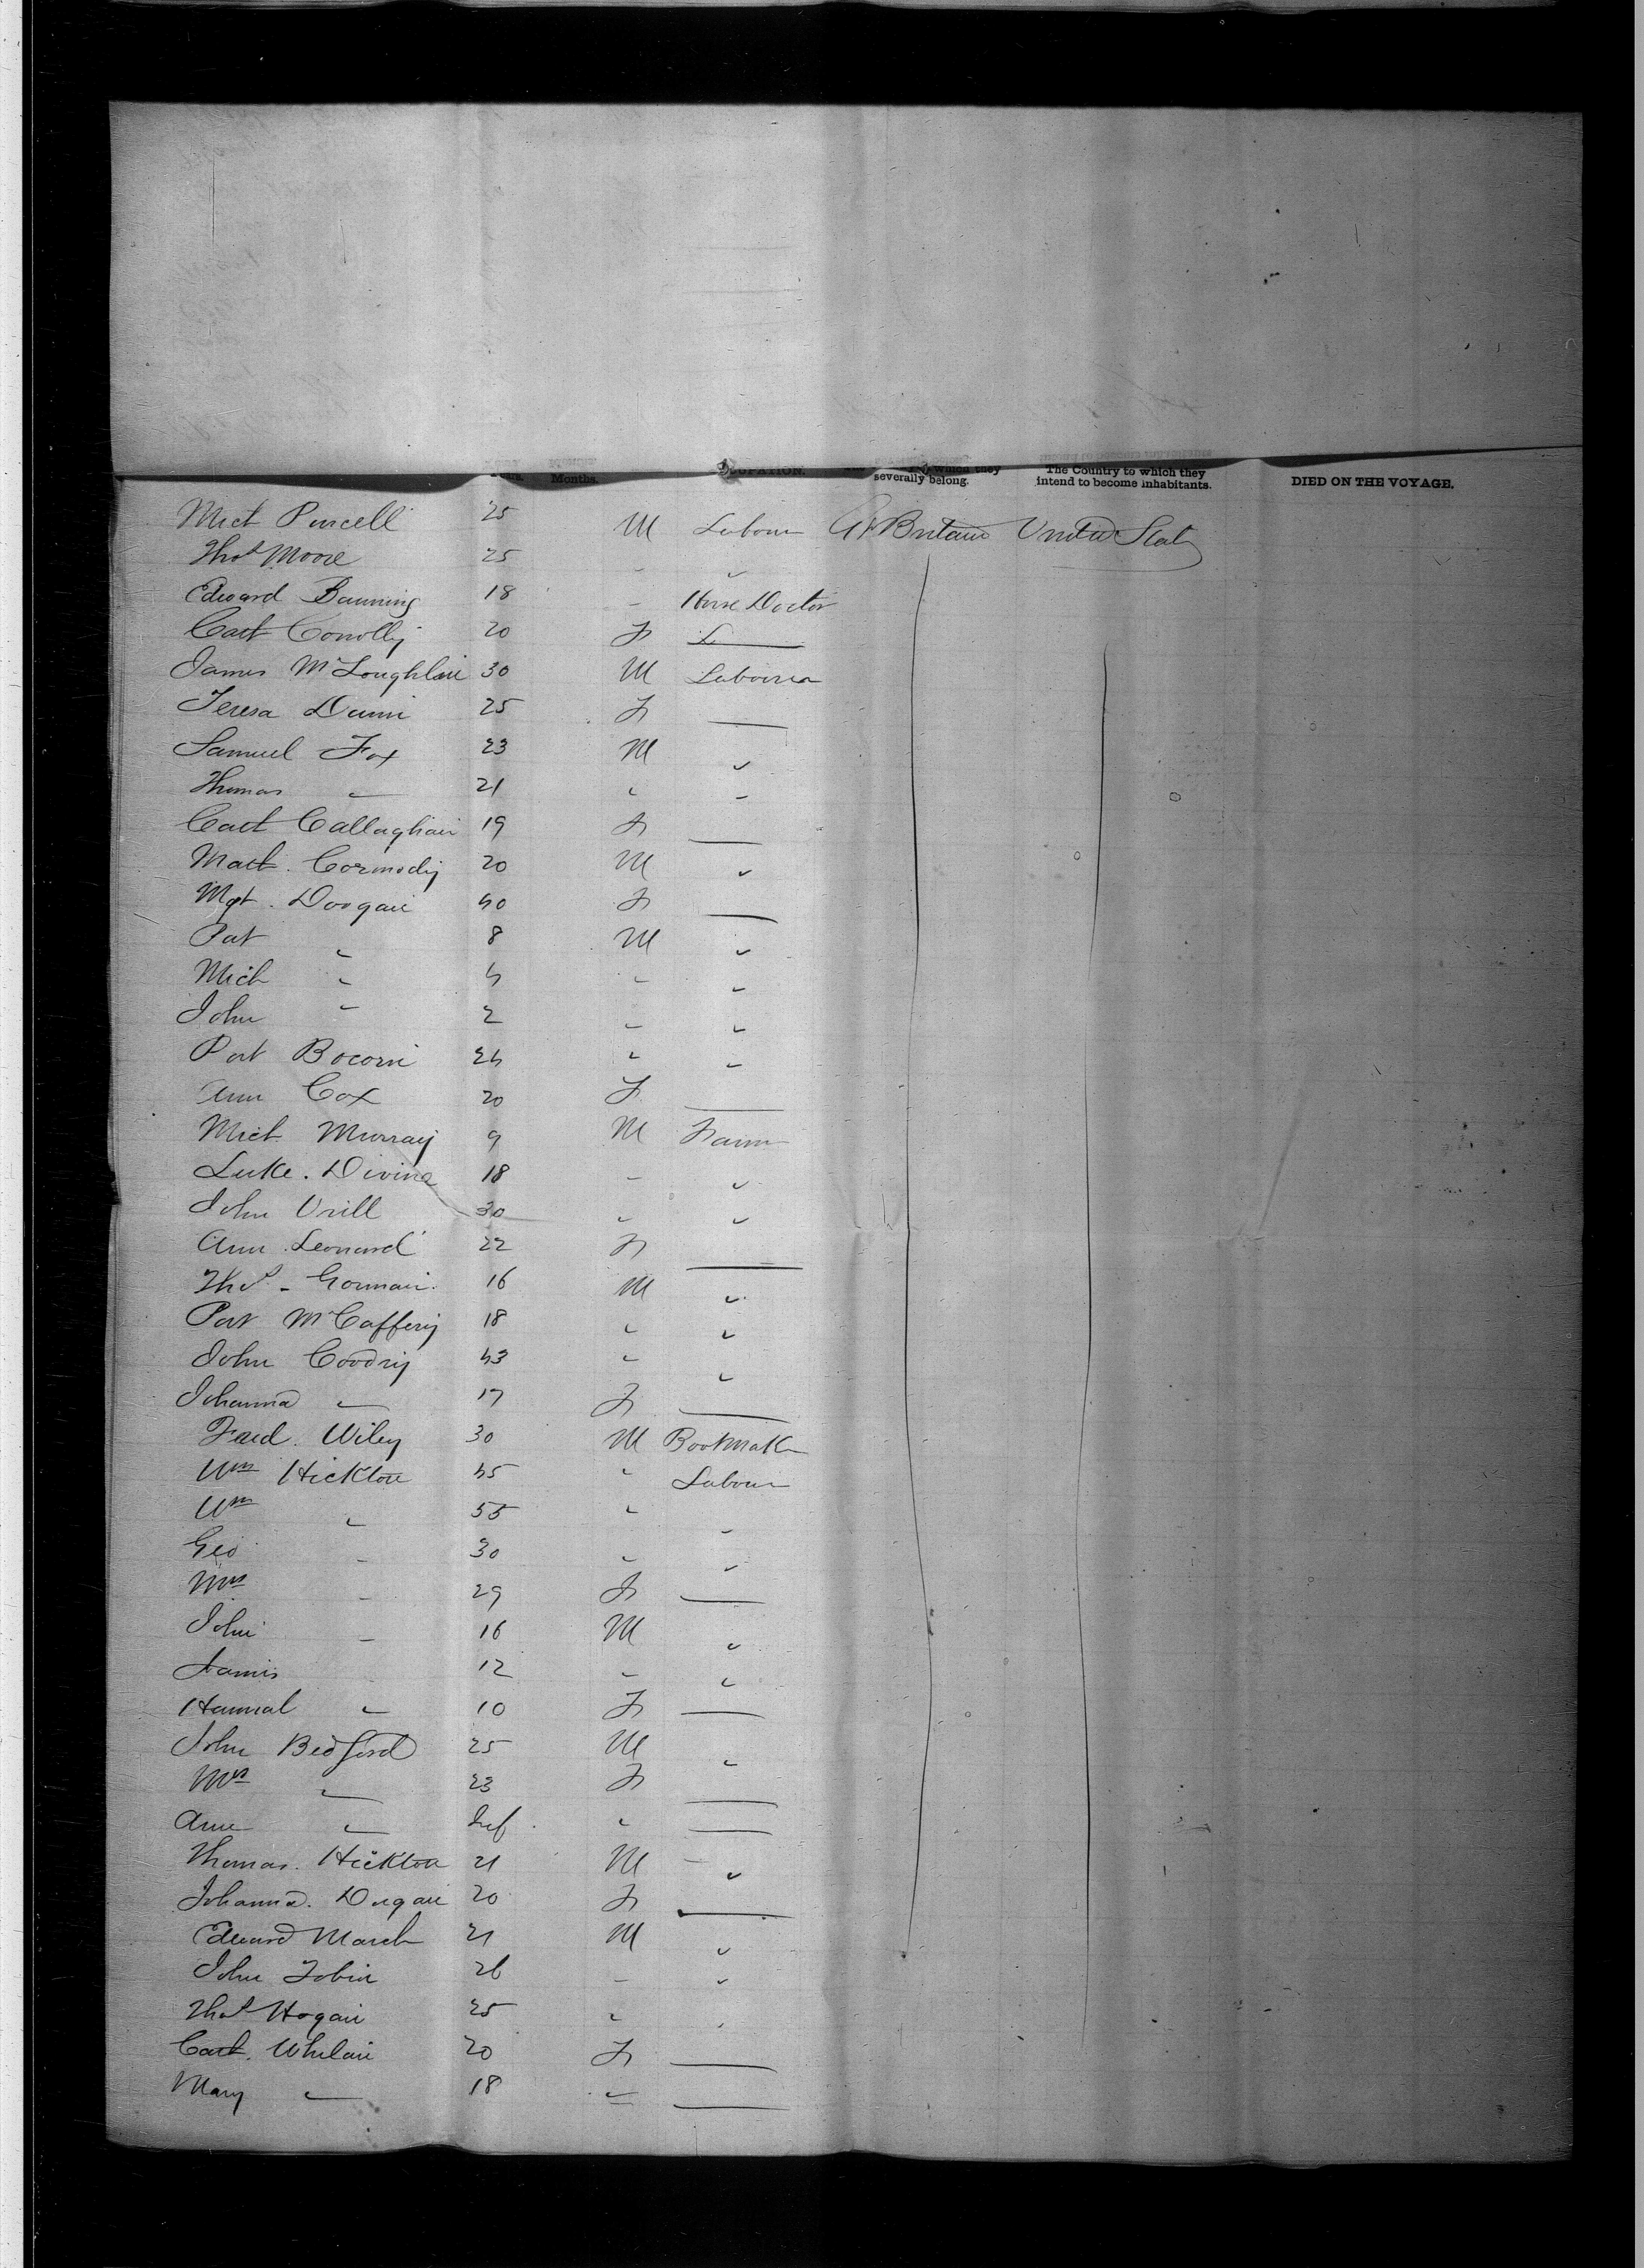 Months.
which they
severally belong.
The Country to which they
intend to become inhabitants.
DIED ON THE VOYAGE.
Mich Purcell 25 M Labour Gt Britain United States
Thos Moore 25 - "
Edward Banning 18 - Horse Doctor
Cath Conolly 20 F
James McLoughlin 30 M Labourer
Teresa Dunn 25 F —
Samuel Fox 23 M "
Thomas " 21 " "
Cath Callaghan 19 F —
Matt. Cormody 20 M "
Mgt. Doogan 40 F —
Pat " 8 M "
Mich " 4 " "
John " 2 " "
Pat 24 " "
Ann Cox 20 F —
Mich Murray 9 M Farm
Luke. Divine 18 - "
John 30 " "
Ann Leonard 22 F —
Thos - Gorman 16 M "
Pat McCaffery 18 " "
John 43 " "
Johanna " 17 F —
Fred. Wiley 30 M Bootmak
Wm Hickton 45 " Labour
Wm " 55 " "
Geo " 30 " "
Mrs " 29 F —
John " 16 M "
James 12 " "
Hannah " 10 F —
John Bedford 25 M "
Mrs " 23 F —
Ann " Inf. " —
Thomas. Hickton 21 M "
Johanna. Dugan 20 F —
Edward March 21 M "
John Tobin 26 - "
Thos Hogan 25 " "
Cath. Whelan 20 F —
Mary " 18 " —